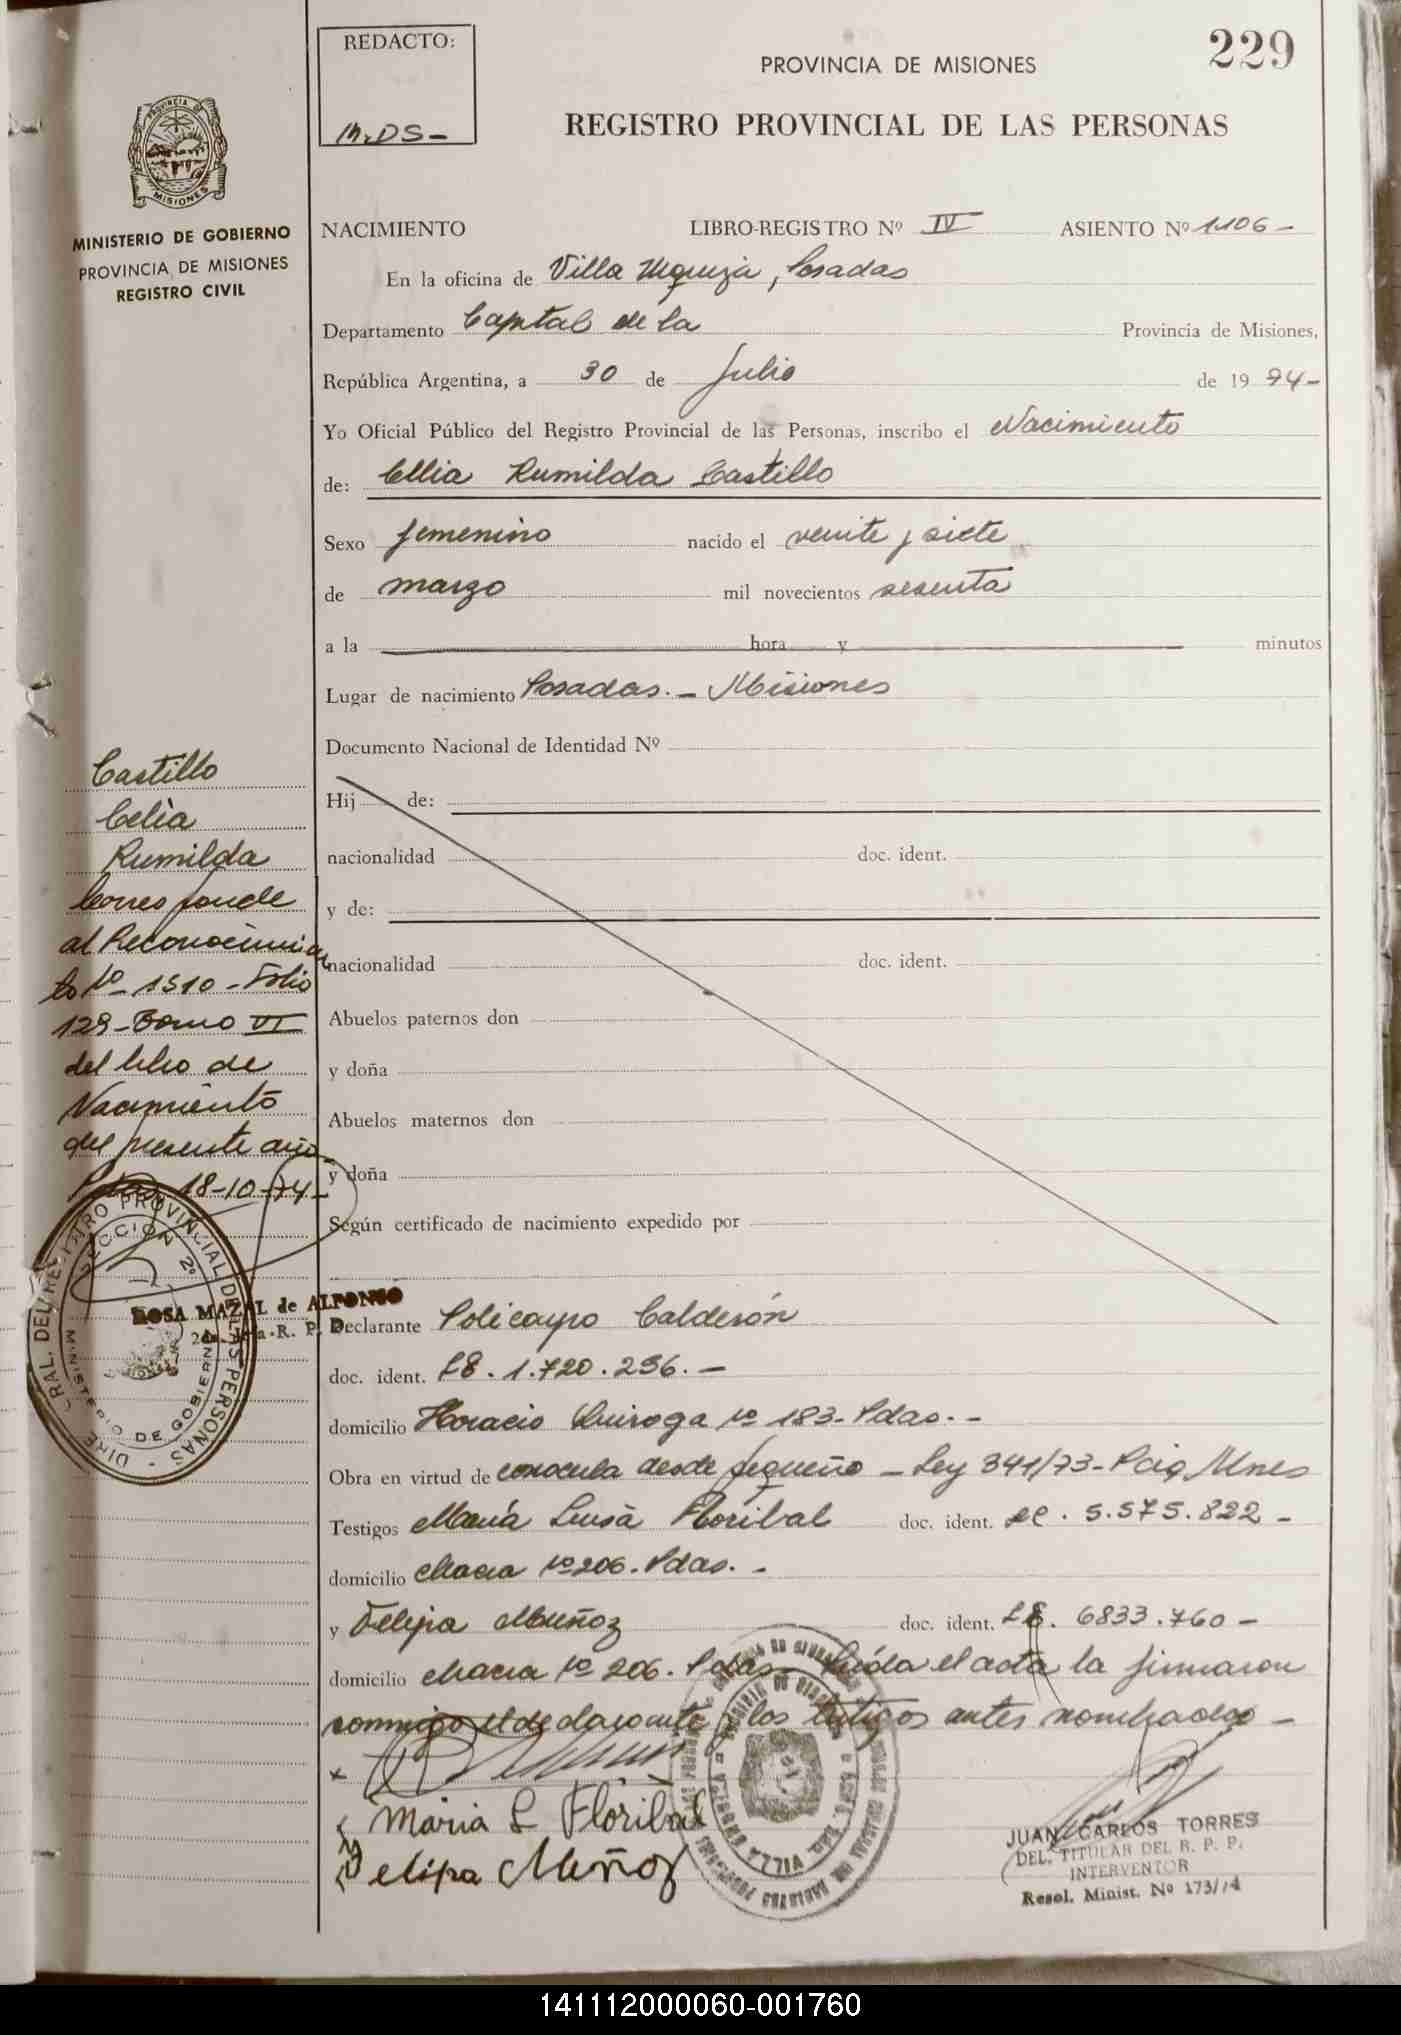 REDACTO:
M.DS-
PROVINCIA DE MISIONES
229
REGISTRO PROVINCIAL DE LAS PERSONAS
PROVINCIA DE MISIONES
MINISTERIO DE GOBIERNO
PROVINCIA DE MISIONES
REGISTRO CIVIL
NACIMIENTO LIBRO-REGISTRO Nº IV ASIENTO Nº 1.106-
En la oficina de Villa Urquiza, Posadas
Departamento Capital de la Provincia de Misiones,
República Argentina, a 30 de Julio de 19 74-
Yo Oficial Público del Registro Provincial de las Personas, inscribo el Nacimiento
de: Celia Rumilda Castillo
Sexo femenino nacido el veinte y siete
de marzo mil novecientos sesenta
a la hora y minutos
Lugar de nacimiento Posadas.- Misiones
Documento Nacional de Identidad Nº
Hij de:
nacionalidad doc. ident.
y de:
nacionalidad doc. ident.
Abuelos paternos don
y doña
Abuelos maternos don
y doña
Según certificado de nacimiento expedido por
Castillo
Celia
Rumilda
Corresponde
al Reconocimien
to Nº 1510-Folio
129-Tomo VI
del libro de
Nacimiento
del presente año
Pdas 18-10-74-
DIREC GRAL. DEL REGISTRO PROVINCIAL DE LAS PERSONAS
SECCION 2º
MINISTERIO DE GOBIERNO
ROSA MAZAL de ALFONSO
R. P.
Declarante Policarpo Calderón
doc. ident. LE. 1.720.236.-
domicilio Horacio Quiroga Nº 183-Pdas.-
Obra en virtud de conocerla desde pequeño - Ley 341/73-Pcia, Mnes
Testigos María Luisa Floribal doc. ident. LC. 5.575.822-
domicilio Chacra Nº 206. Pdas.-
y Felipa Muñoz doc. ident. LE. 6833.760-
domicilio chacra Nº 206. Pdas- Leída el acta la firmaron
conmigo el declarante y los testigos antes nombrados-
Maria L Floribal
Felipa Muñoz
VILLA URQUIZA
JUAN CARLOS TORRES
DEL. TITULAR DEL R. P. P.
INTERVENTOR
Resol. Minist. Nº 173/74
141112000060-001760